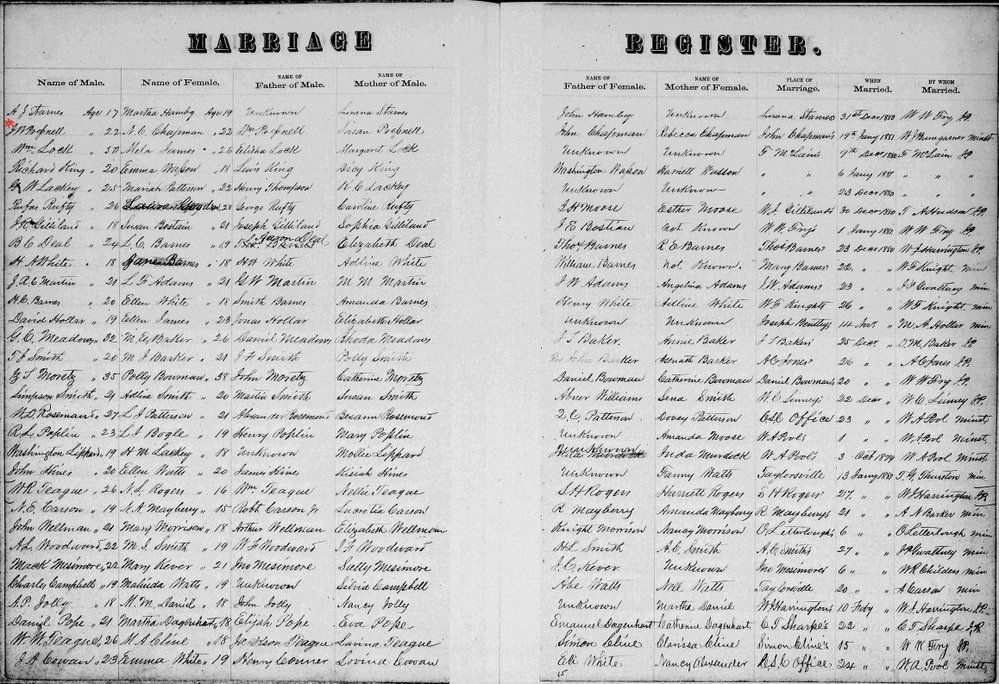 MARRIAGE REGISTER.
Name of Male. Name of Female. NAME OF Father of Male. NAME OF Mother of Male. NAME OF Father of Female. NAME OF Mother of Female. PLACE OF Marriage. WHEN Married. BY WHOM Married.
A J Starnes Age 17 Martha Hamby Age 19 Unknown Lurana Starnes John Hamby Unknown Lurana Starnes 31st Decr 1880 W W Fry JP
22 N. C. Chapman " 22 Susan John Chapman Rebecca Chapman John Chapman's 19th Jany 1881 W J Bumgarner Minist
Wm Lock " 37 James " 26 Elisha Lock Margaret Lock Unknown Unknown F McLain's 9th Decr 1880 F McLain JP
Richard King " 20 Emma Wason " 18 Lewis King Dicy King Washington Wason Harriett Wasson " " 6 Jany 1881 " "
G W Lackey " 25 Mariah Patterson " 22 Henry Thompson R C Lackey Unknown Unknown " " 23 Decr 1880 " "
Rufus Rufty " 26 " 28 George Rufty Caroline Rufty J H Moose Esther Moose W. J. Gillilands 30 Decr 1880 JP
Gilliland " 18 Susan Bostain " 21 Joseph Gilliland Sophia Gilliland J. E. Bostian Not Known W W Fry's 1 Jany 1881 W W Fry JP
B C Deal " 24 L. C. Barnes " 19 Jason Deal Elizabeth Deal Thos Barnes R E Barnes Thos Barnes' 23 Decr 1880 W J Harrington JP
H A White " 18 Jane Barnes " 18 H W White Adline White William Barnes Not Known Mary Barnes 22 " W. F. Knight, min
J. A. C Martin " 21 L. F. Adams " 21 G. W Martin M. M. Martin J W Adams Angeline Adams J. W. Adams' 23 " J P Gwaltney min
H. C. Barnes " 20 Ellen White " 18 Smith Barnes Amanda Barnes Henry White Adline White W F Knights 26 " W F Knight, min
David Hollar " 19 Ellen James " 23 Jonas Hollar Elizabeth Hollar Unknown Unknown Joseph Bentley's 14 M A Hollar min
G. C. Meadows " 32 N. E. Baker " 26 Daniel Meadows Rhoda Meadows J. S Baker. Annie Baker J Baker's 25 Decr " D. M. Baker JP
T J Smith " 20 M J Barker " 21 J F Smith Polly Smith John Barker Asenath Barker A C Jones 26 " A C Jones JP
G. T Moretz " 35 Polly Bowman " 38 John Moretz Catherine Moretz Daniel Bowman Catherine Bowman Daniel Bowman's 20 " W W Fry JP
Simpson Smith " 21 Adline Smith " 20 Martin Smith Susan Smith Abner Williams Lena Smith W. C. Linney's 22 Decr " W. C Linney JP
W. D. Rosemond " 27 L J Patterson " 21 Alexander Rosemond Rosemond Q. C. Patterson Dovey Patterson CSC Office 23 " W A Pool minst
R. L. Poplin " 23 L J Bogle " 19 Henry Poplin Mary Poplin Unknown Amanda Moose W. A Pool's 1 " W A Pool minst
Washington Lippard " 19 H M Lackey " 18 Unknown Mollie Lippard Unknown Murdock W A Pool's 3 Oct 1879 W A Pool minst
John Hines " 20 Ellen Watts " 20 James Hines Kisiah Hines Unknown Fanny Watts Taylorsville 13 Jany 1881 T. G. Thurston min
W R Teague " 26 N. L. Rogers " 16 Wm Teague Nellie Teague S H Rogers Harriett Rogers S H Rogers' 27 " W J Harrington JP
N. C. Carson " 19 N. A Mayberry " 15 Robt Carson Jr Lucretia Carson R Mayberry Amanda Mayberry R Mayberry's 21 " A N Barker min
John Wellman " 21 Mary Morrison " 18 Arthur Wellman Elizabeth Wellman Morrison Nancy Morrison O Letterlough's 6 " O Letterlough min
A. L. Woodward " 22 M. J. Smith " 19 W F Woodward J. F Woodward H. L. Smith A. C. Smith A. C. Smith's 27 " J P Gwaltney min
Mack Mesimore " 22 Mary Kever " 21 Jno Mesimore Sally Mesimore J. C. Kever Unknown Jno Mesimore's 6 " W R Childers min
Charles Campbell " 19 Malinda Watts " 19 Unknown Silvie Campbell Abe Watts Nell Watts Taylorsville 20 " A Carson min
A. P. Jolly " 18 M. M. Daniel " 18 John Jolly Nancy Jolly Unknown Martha Daniel W J Harrington's 10 Feby " W. J. Harrington JP
Daniel Pope " 21 Martha Dagenhart " 18 Elijah Pope Eva Pope Emanuel Dagenhart Catherine Dagenhart C T Sharpe's 22 " C. T Sharpe J.P.
W. W. Teague " 26 M A Cline " 18 Jackson Teague Lavina Teague Simon Cline Clarissa Cline Simon Cline's 15 " W W Fry JP.
J. H Cowan " 23 Emma White " 19 Henry Conner Lovina Cowan Eli White Nancy Alexander CSC Office 24 " W. A. Pool minst
15